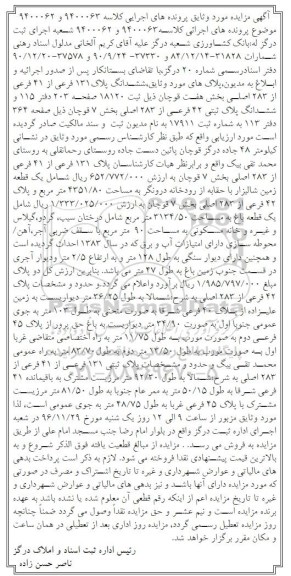 آگهی مزایده مورد وثایق پرونده های اجرایی کلاسه ۹۴۰۰۰۶۳ و ۹۴۰۰۰۶۲
موضوع پرونده های اجرائی کلاسه۹۴۰۰۰۶۳ و ۹۴۰۰۰۶۲ شعبه اجرای ثبت
درگز له:بانک کشاورزی شعبه درگز علیه آقای کریم آلخانی مدلول اسناد رهنی
شمارات ۳۱۸۲۸-۸۴/۱۲/۱۴ و ۳۷۳۳۰-۹۰/۹/۲۴ و ۳۷۵۷۸-۹۰/۱۲/۲۰
دفتر اسنادرسمی شماره ۲۰ درگز،با تقاضای بستانکار پس از صدور اجرائیه و
ابلاغ به مدیون،پلاک های مورد وثایق،ششدانگ پلاک۱۳۱ فرعی از ۴۱ فرعی
از ۲۸۳ اصلی بخش هفت قوچان ذیل ثبت ۱۸۱۲۰ صفحه ۲۰۳ دفتر ۱۱۵ و
ششدانگ پلاک ثبتی ۴۲ فرعی از ۲۸۳ اصلی بخش ۷ قوچان ذیل صفحه ۳۶۴
دفتر ۱۱۳ به شماره ثبت ۱۷۹۱۱ به نام مدیون ثبت و سند مالکیت صادر گردیده
است مورد ارزیابی واقع که طبق نظر کارشناس رسمی مورد وثایق در نشانی
کیلومتر ۴۸ جاده درگز قوچان پائین دست جاده روستای رحمانقلی به روستای
محمد تقی بیک واقع و برابرنظر هیات کارشناسان پلاک ۱۳۱ فرعی از ۴۱ فرعی
از ۲۸۳ اصلی بخش ۷ قوچان به ارزش ۶۵۲/۷۷۲/۰۰۰ ریال شامل یک قطعه
زمین شالیزار با حقابه از رودخانه درونگر به مساحت ۴۳۵۱/۸۰ متر مربع و پلاک
۴۲ فرعی از ۲۸۳ اصلی بخش ۷ قوچان به ارزش ۱/۳۳۳/۰۲۵/۰۰۰ ریال شامل
یک قطعه باغ به مساحت ۳۱۳۴/۵۰ متر مربع شامل درختان سیب،گردو،گیلاس
و غیره وخانه مسکونی به مساحت ۹۰ متر مربع با سقف ضربی آجرآهن/
محوطه سازی دارای امتیازات آب و برق که در سال ۱۳۸۲ احداث گردیده است
و همچنین دارای دیوار سنگی به طول ۱۴۸ متر و به ارتفاع ۲/۵ متر ودیوار آجری
در قسمت جنوب زمین باغ به طول ۲۷ متر می باشد. بنابرین ارزش کل دو پلاک
مبلغ ۱/۹۸۵/۷۹۷/۰۰۰ ریال برآورد واعلام می گردد.و حدود و مشخصات پلاک
۴۲ فرعی از ۲۸۳ اصلی به شرح:شمالا به طول ۳۶/۲۵ متر دیواریست به زمین
عمومی جنوبا اول به صورت ۳۴/۹۰ متر دیواریست به باغ حق پرور از پلاک ۴۵
محمد تقی بیک و حدود و مشخصات پلاک ثبتی ۱۳۱ فرعی از ۴۱ فرعی از
۲۸۳ اصلی به شرح:شمالا به طول ۹۲/۳۰ مرزیست مشترک به باقیمانده ۴۱
فرعی شرقا به طول ۵۰/۱۵ متر به ممر عام جنوبا به طول ۸۱/۵۰ مرزیست
مشترک با پلاک ۴۵ فرعی غربا به طول ۴۸/۷۵ متر به جوی عمومی است، لذا
مورد وثایق مزبور از ساعت ۹ الی ۱۲ روز یک شنبه مورخ ۹۶/۱۱/۲۹ در شعبه
اجرای اداره ثبت درگز واقع در بلوار امام رضا جنب مسجد امام علی از طریق
مزایده به فروش می رسد. . مزایده از مبالغ قطعیت یافته فوق الذکر شروع و به
بالاترین قیمت پیشنهادی نقدا فروخته می شود. لازم به ذکر است پرداخت بدهی
های مالیاتی و عوارض شهرداری و غیره تا تاریخ اشتراک و مصرف در صورتی
که مورد مزایده دارای آنها باشد و نیز بدهی های مالیاتی و عوارض شهرداری و
غیره تا تاریخ مزایده اعم از اینکه رقم قطعی آن معلوم شده یا نشده باشد به عهده
برنده مزایده است و نیم عشر و حق مزایده نقداً وصول می گردد ضمناً چنانچه
روز مزایده تعطیل رسمی گردد، مزایده روز اداری بعد از تعطیلی در همان ساعت
و مکان مقرر برگزار خواهد شد.
رئیس اداره ثبت اسناد و املاک درگز
ناصر حسن زاده